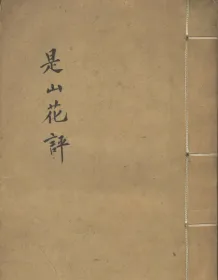 是山花評